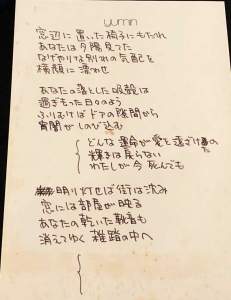 yumin
窓辺に置いた椅子にもたれ
あなたは夕陽見てた
なげやりな別れの気配を
横顔に漂わせ
あなたの落とした眼鏡は
過ぎ去った日々のよう
ふりむけばドアの隙間から
宵闇がしのび込む
どんな運命が愛を遠ざけたの
輝きは戻らない
わたしが今死んでも
明り灯せば街は沈み
窓には部屋が映る
あなたの乾いた靴音も
消えてゆく 雑踏の中へ